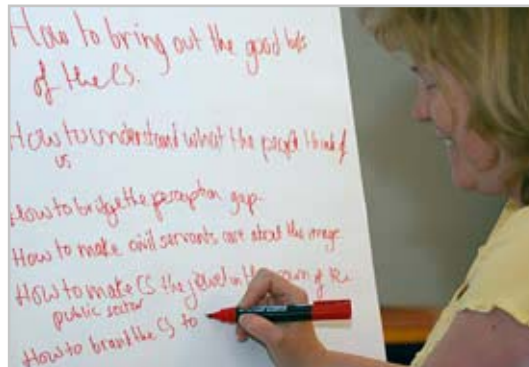 How to bring out the good bits
of the CS.
How to understand what the people think of
us
How to bridge the perception gap.
How to make civil servants care about the image
How to make CS the jewel in the crown of the
public sector
How to brand the CS to